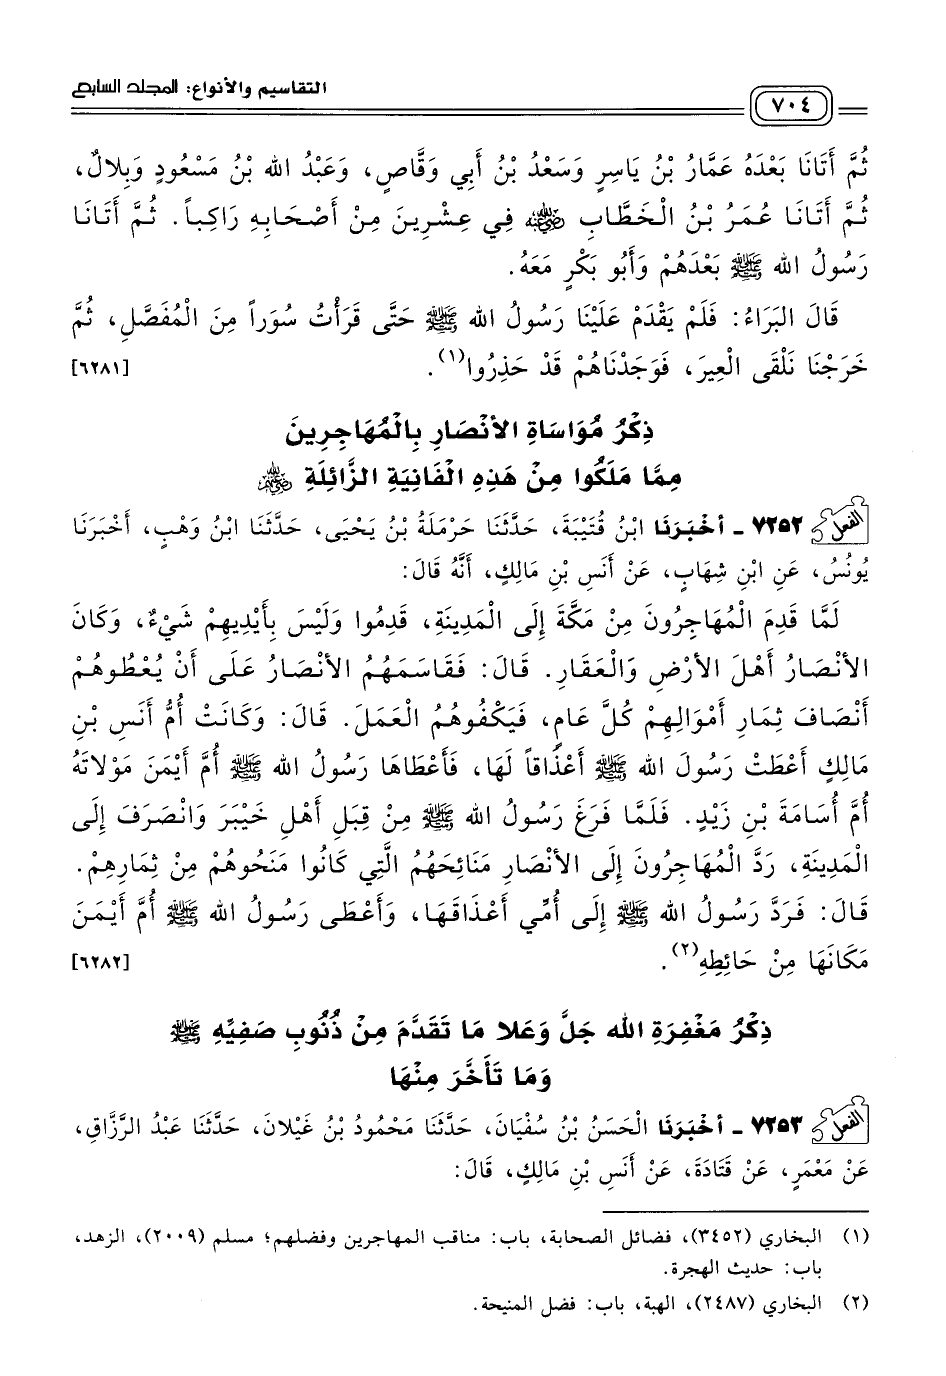 التقاسيم والأنواع: المجلد السابع
٧٠٤
ثُمَّ أَتَانَا بَعْدَهُ عَمَّارُ بْنُ يَاسِرٍ وَسَعْدُ بْنُ أَبِي وَقَّاصٍ، وَعَبْدُ الله بْنُ مَسْعُودٍ وَبِلالٌ،
ثُمَّ أَتَانَا عُمَرُ بْنُ الْخَطَّابِ رضي الله عنه فِي عِشْرِينَ مِنْ أَصْحَابِهِ رَاكِباً. ثُمَّ أَتَانَا
رَسُولُ الله ﷺ بَعْدَهُمْ وَأَبُو بَكْرٍ مَعَهُ.
قَالَ البَرَاءُ: فَلَمْ يَقْدَمْ عَلَيْنَا رَسُولُ الله ﷺ حَتَّى قَرَأْتُ سُوَراً مِنَ الْمُفَصَّلِ، ثُمَّ
خَرَجْنَا نَلْقَى الْعِيرَ، فَوَجَدْنَاهُمْ قَدْ حَذِرُوا(١). [٦٢٨١]
ذِكْرُ مُوَاسَاةِ الأنْصَارِ بِالْمُهَاجِرِينَ
مِمَّا مَلَكُوا مِنْ هَذِهِ الْفَانِيَةِ الزَّائِلَةِ رضي الله عنهم
الفعل ٧٢٥٢ - أخْبَرَنَا ابْنُ قُتَيْبَةَ، حَدَّثَنَا حَرْمَلَةُ بْنُ يَحْيَى، حَدَّثَنَا ابْنُ وَهْبٍ، أَخْبَرَنَا
يُونُسُ، عَنِ ابْنِ شِهَابٍ، عَنْ أَنَسِ بْنِ مَالِكٍ، أَنَّهُ قَالَ:
لَمَّا قَدِمَ الْمُهَاجِرُونَ مِنْ مَكَّةَ إِلَى الْمَدِينَةِ، قَدِمُوا وَلَيْسَ بِأَيْدِيهِمْ شَيْءٌ، وَكَانَ
الأنْصَارُ أَهْلَ الأرْضِ وَالْعَقَارِ. قَالَ: فَقَاسَمَهُمُ الأنْصَارُ عَلَى أَنْ يُعْطُوهُمْ
أَنْصَافَ ثِمَارِ أَمْوَالِهِمْ كُلَّ عَامٍ، فَيَكْفُوهُمُ الْعَمَلَ. قَالَ: وَكَانَتْ أُمُّ أَنَسِ بْنِ
مَالِكٍ أَعْطَتْ رَسُولَ الله ﷺ أَعْذَاقاً لَهَا، فَأَعْطَاهَا رَسُولُ الله ﷺ أُمَّ أَيْمَنَ مَوْلاتَهُ
أُمَّ أُسَامَةَ بْنِ زَيْدٍ. فَلَمَّا فَرَغَ رَسُولُ الله ﷺ مِنْ قِبَلِ أَهْلِ خَيْبَرَ وَانْصَرَفَ إِلَى
الْمَدِينَةِ، رَدَّ الْمُهَاجِرُونَ إِلَى الأنْصَارِ مَنَائِحَهُمُ الَّتِي كَانُوا مَنَحُوهُمْ مِنْ ثِمَارِهِمْ.
قَالَ: فَرَدَّ رَسُولُ الله ﷺ إِلَى أُمِّي أَعْذَاقَهَا، وَأَعْطَى رَسُولُ الله ﷺ أُمَّ أَيْمَنَ
مَكَانَهَا مِنْ حَائِطِهِ(٢). [٦٢٨٢]
ذِكْرُ مَغْفِرَةِ الله جَلَّ وَعَلا مَا تَقَدَّمَ مِنْ ذُنُوبِ صَفِيِّهِ ﷺ
وَمَا تَأَخَّرَ مِنْهَا
الفعل ٧٢٥٣ - أخْبَرَنَا الْحَسَنُ بْنُ سُفْيَانَ، حَدَّثَنَا مَحْمُودُ بْنُ غَيْلانَ، حَدَّثَنَا عَبْدُ الرَّزَّاقِ،
عَنْ مَعْمَرٍ، عَنْ قَتَادَةَ، عَنْ أَنَسِ بْنِ مَالِكٍ، قَالَ:
(١) البخاري (٣٤٥٢)، فضائل الصحابة، باب: مناقب المهاجرين وفضلهم؛ مسلم (٢٠٠٩)، الزهد،
باب: حديث الهجرة.
(٢) البخاري (٢٤٨٧)، الهبة، باب: فضل المنيحة.